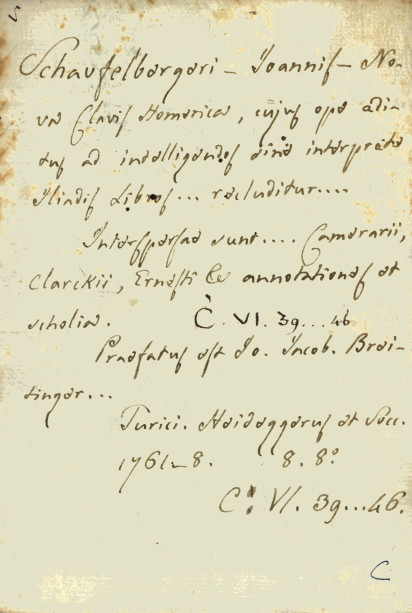 Schaufelbergeri – Joannis – No-
væ Clavis Homericæ, cujus ope adi-
tus ad intelligendos sine interprete
Iliadis Libros... recluditur....
Interspersae sunt.... Camerarii,
Clarckii, Ernesti &c annotationes et
scholia. C. VI. 39...46
Praefatus est Jo. Jacob. Brei-
tinger...
Turici. Heideggerus et Socc.
1761–8. 8. 8º
C. VI. 39...46.
C